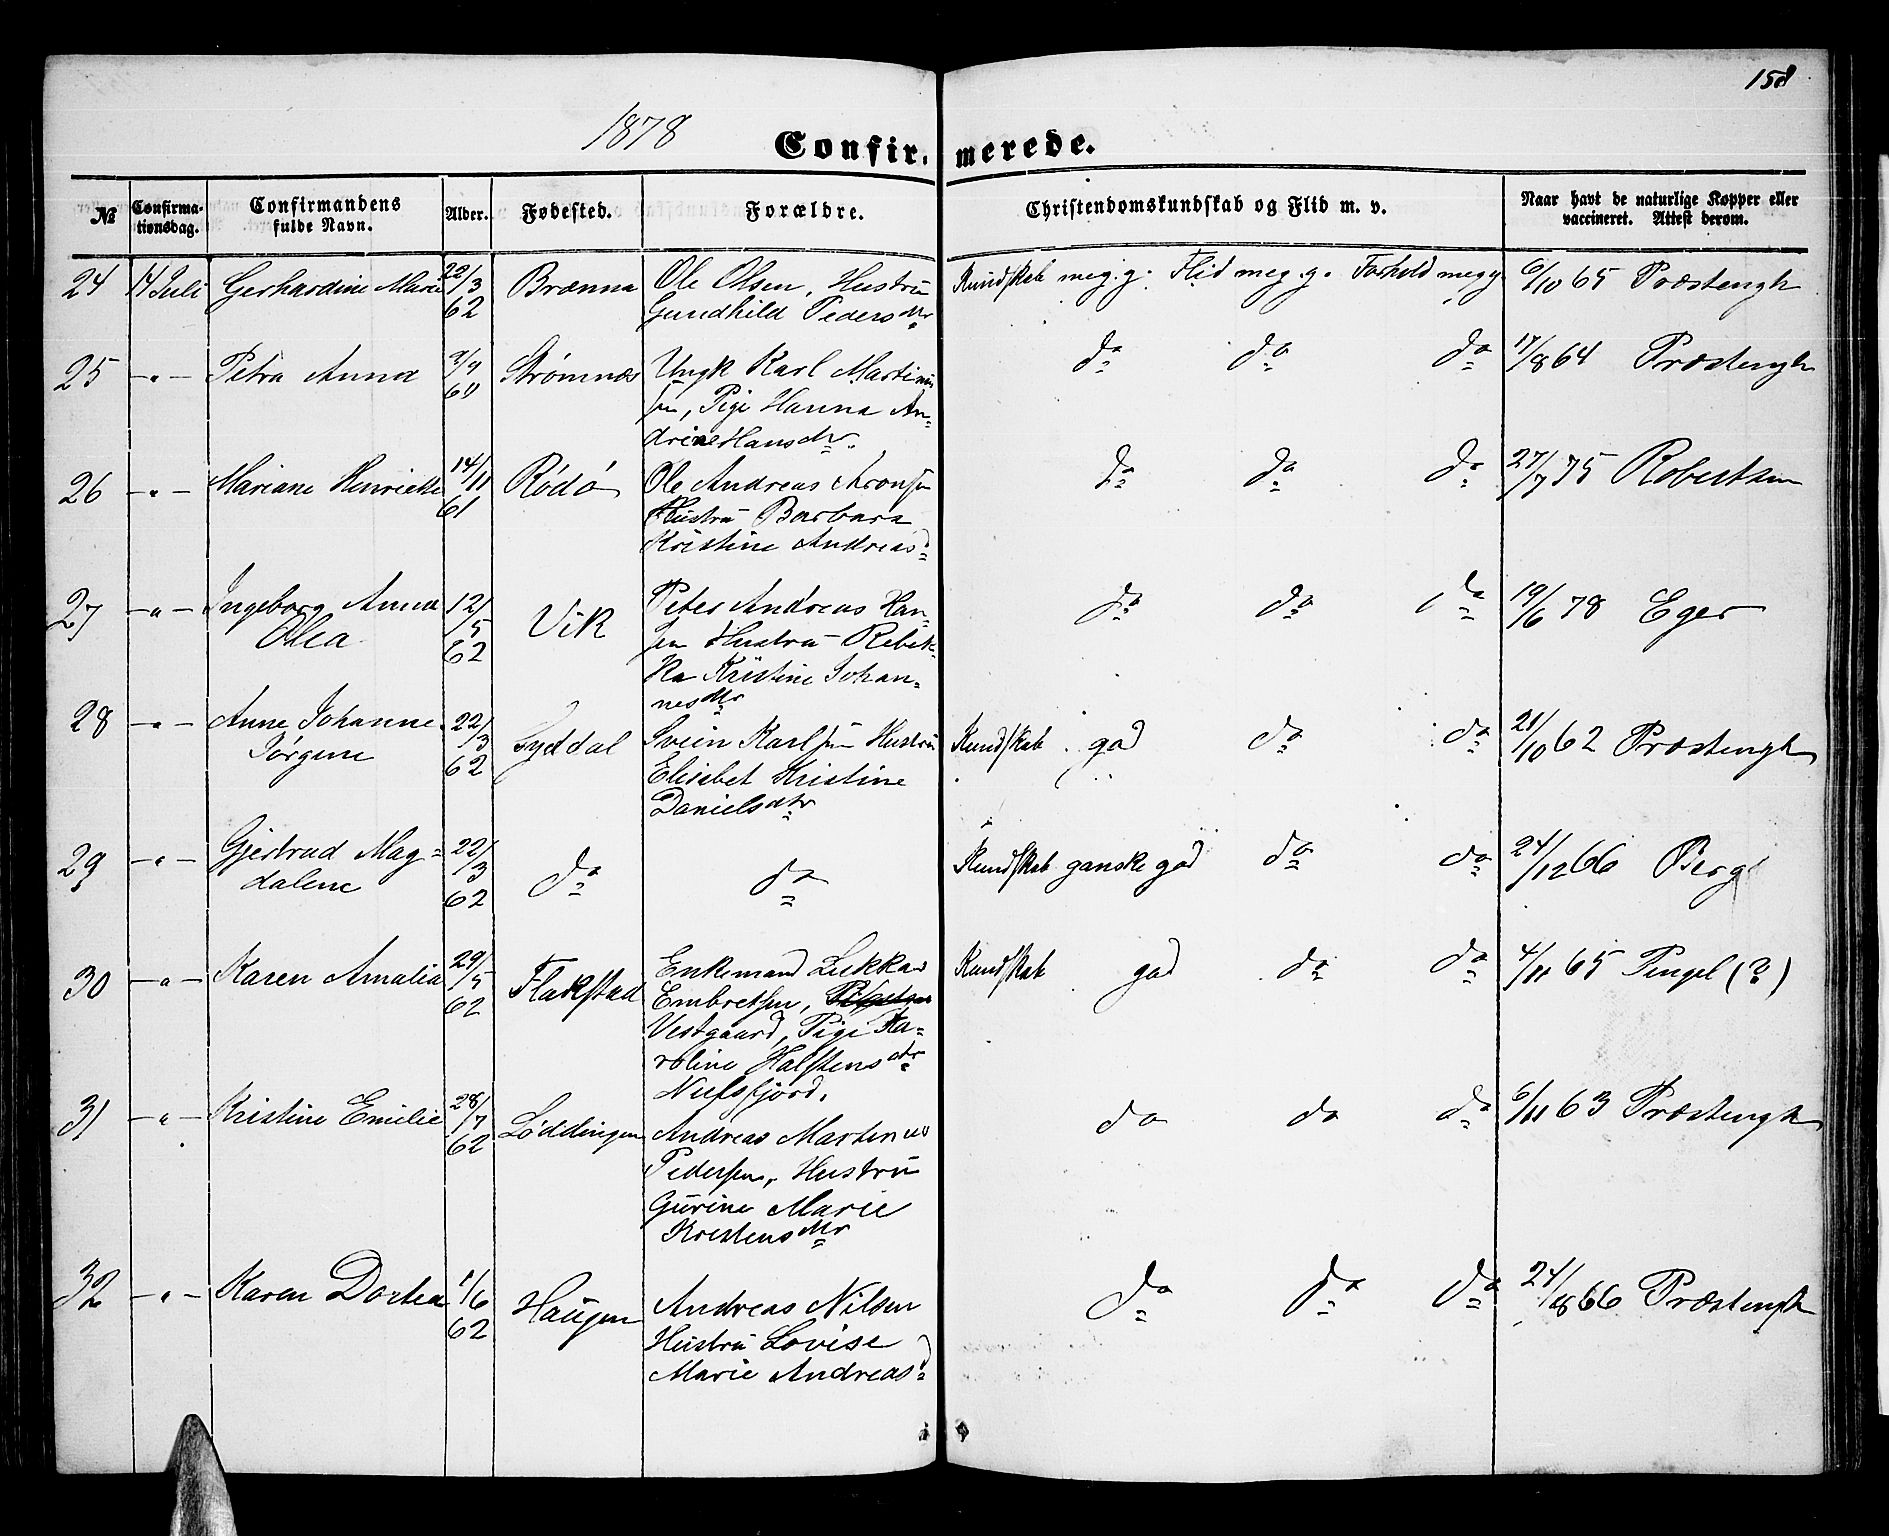 158
1878
Confirmerede.
№ Confirmationsdag. Confirmandens fulde Navn. Alder. Fødested. Forældre. Christendomskundskab og Flid m. v. Naar havt de naturlige Kopper eller vaccineret. Attest derom.
24 14 Juli Gerhardine Marie 22/3 62 Brænna Ole Olsen, Hustru Gundhild Pedersdtr Kundskab meg. g. Flid meg. g. Forhold meg g 6/10 65 Præstengh
25 -„- Petra Anna Strømnæs Ungk Karl Martinussen, Pige Hanna Andrine Hansdtr. do do do 17/8 64 Præstengh
26 -„- Mariane Henriette 14/11 61 Rødø Ole Andreas Aronsen Hustru Barbara Kristine Andreasd do do do 27/7 75 Robertsen
27 -„- Ingeborg Anna Olea 12/5 62 Vik Peter Andreas Hansen Hustru Rebekka Kristine Johannesdtr do do do 19/6 78 Eger
28 -„- Anne Johanne Jørgine 22/3 62 Syddal Svein Karlsen Hustru Elisabet Kristine Danielsdtr Kundskab god do do 21/10 62 Præstengh
29 -„- Gjertrud Magdalene 22/3 62 do do Kundskab ganske god do do 24/12 66 Berg
30 -„- Karen Amalia 29/5 62 Flakstad Enkemand Lukkas Embretsen, Vestgaard, Pige Karoline Halstensdtr Nufsfjord. Kundskab god do do 4/11 65 Pingel (?)
31 -„- Kristine Emilie 28/7 62 Løddingen Andreas Martinus Pedersen, Hustru Gurine Marie Kristensdtr do do do 6/11 63 Præstengh
32 -„- Karen Dortea 1/6 62 Haugen Andreas Nilsen Hustru Lovise Marie Andreasd do do do 24/8 66 Præstengh